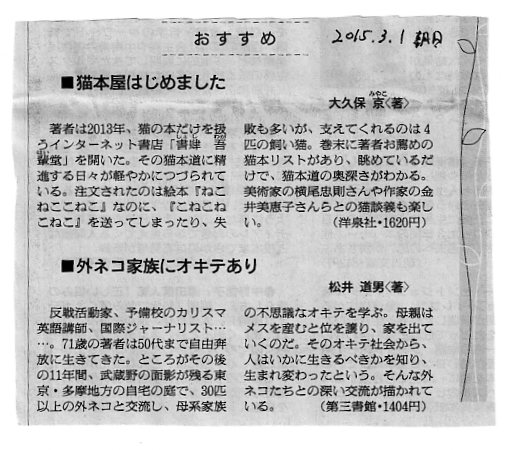 おすすめ
2015.3.1 朝日
■猫本屋はじめました
大久保 京〈著〉
みやこ
著者は2013年、猫の本だけを扱
うインターネット書店「書肆 吾
輩堂」を開いた。その猫本道に精
進する日々が軽やかにつづられて
いる。注文されたのは絵本『ねこ
ねここねこ』なのに、『こねこねこ
ねこ』を送ってしまったり、失
敗も多いが、支えてくれるのは4
匹の飼い猫。巻末に著者お薦めの
猫本リストがあり、眺めているだ
けで、猫本道の奥深さがわかる。
美術家の横尾忠則さんや作家の金
井美恵子さんらとの猫談義も楽し
い。 (洋泉社・1620円)
■外ネコ家族にオキテあり
松井 道男〈著〉
反戦活動家、予備校のカリスマ
英語講師、国際ジャーナリスト…
…。71歳の著者は50代まで自由奔
放に生きてきた。ところがその後
の11年間、武蔵野の面影が残る東
京・多摩地方の自宅の庭で、30匹
以上の外ネコと交流し、母系家族
の不思議なオキテを学ぶ。母親は
メスを産むと位を譲り、家を出て
いくのだ。そのオキテ社会から、
人はいかに生きるべきかを知り、
生まれ変わったという。そんな外
ネコたちとの深い交流が描かれて
いる。 (第三書館・1404円)